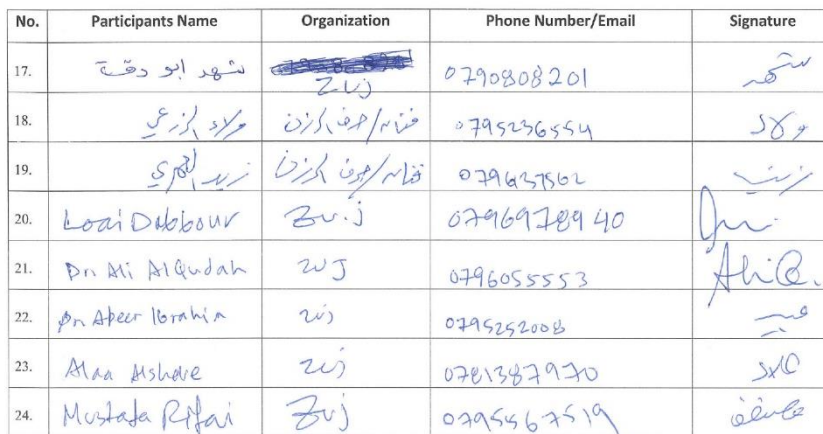 No. Participants Name Organization Phone Number/Email Signature
17. شهد ابو دقة ZUJ 0790808201 شهد
18. ولاء الزرعي فنانه/حرف الاردن 0795236554 ولاء
19. زيد العمري فنانه/حرف الاردن زينب
20. Loai Dabbour Zu.j 0796978940
21. Dr. Ali AlQudah ZUJ 0796055553 Ali Q.
22. Dr Abeer Ibrahim zuj 0795252008 عبير
23. Alaa zuj 0781387970 علاء
24. Mustafa Rifai Zuj 0795567519